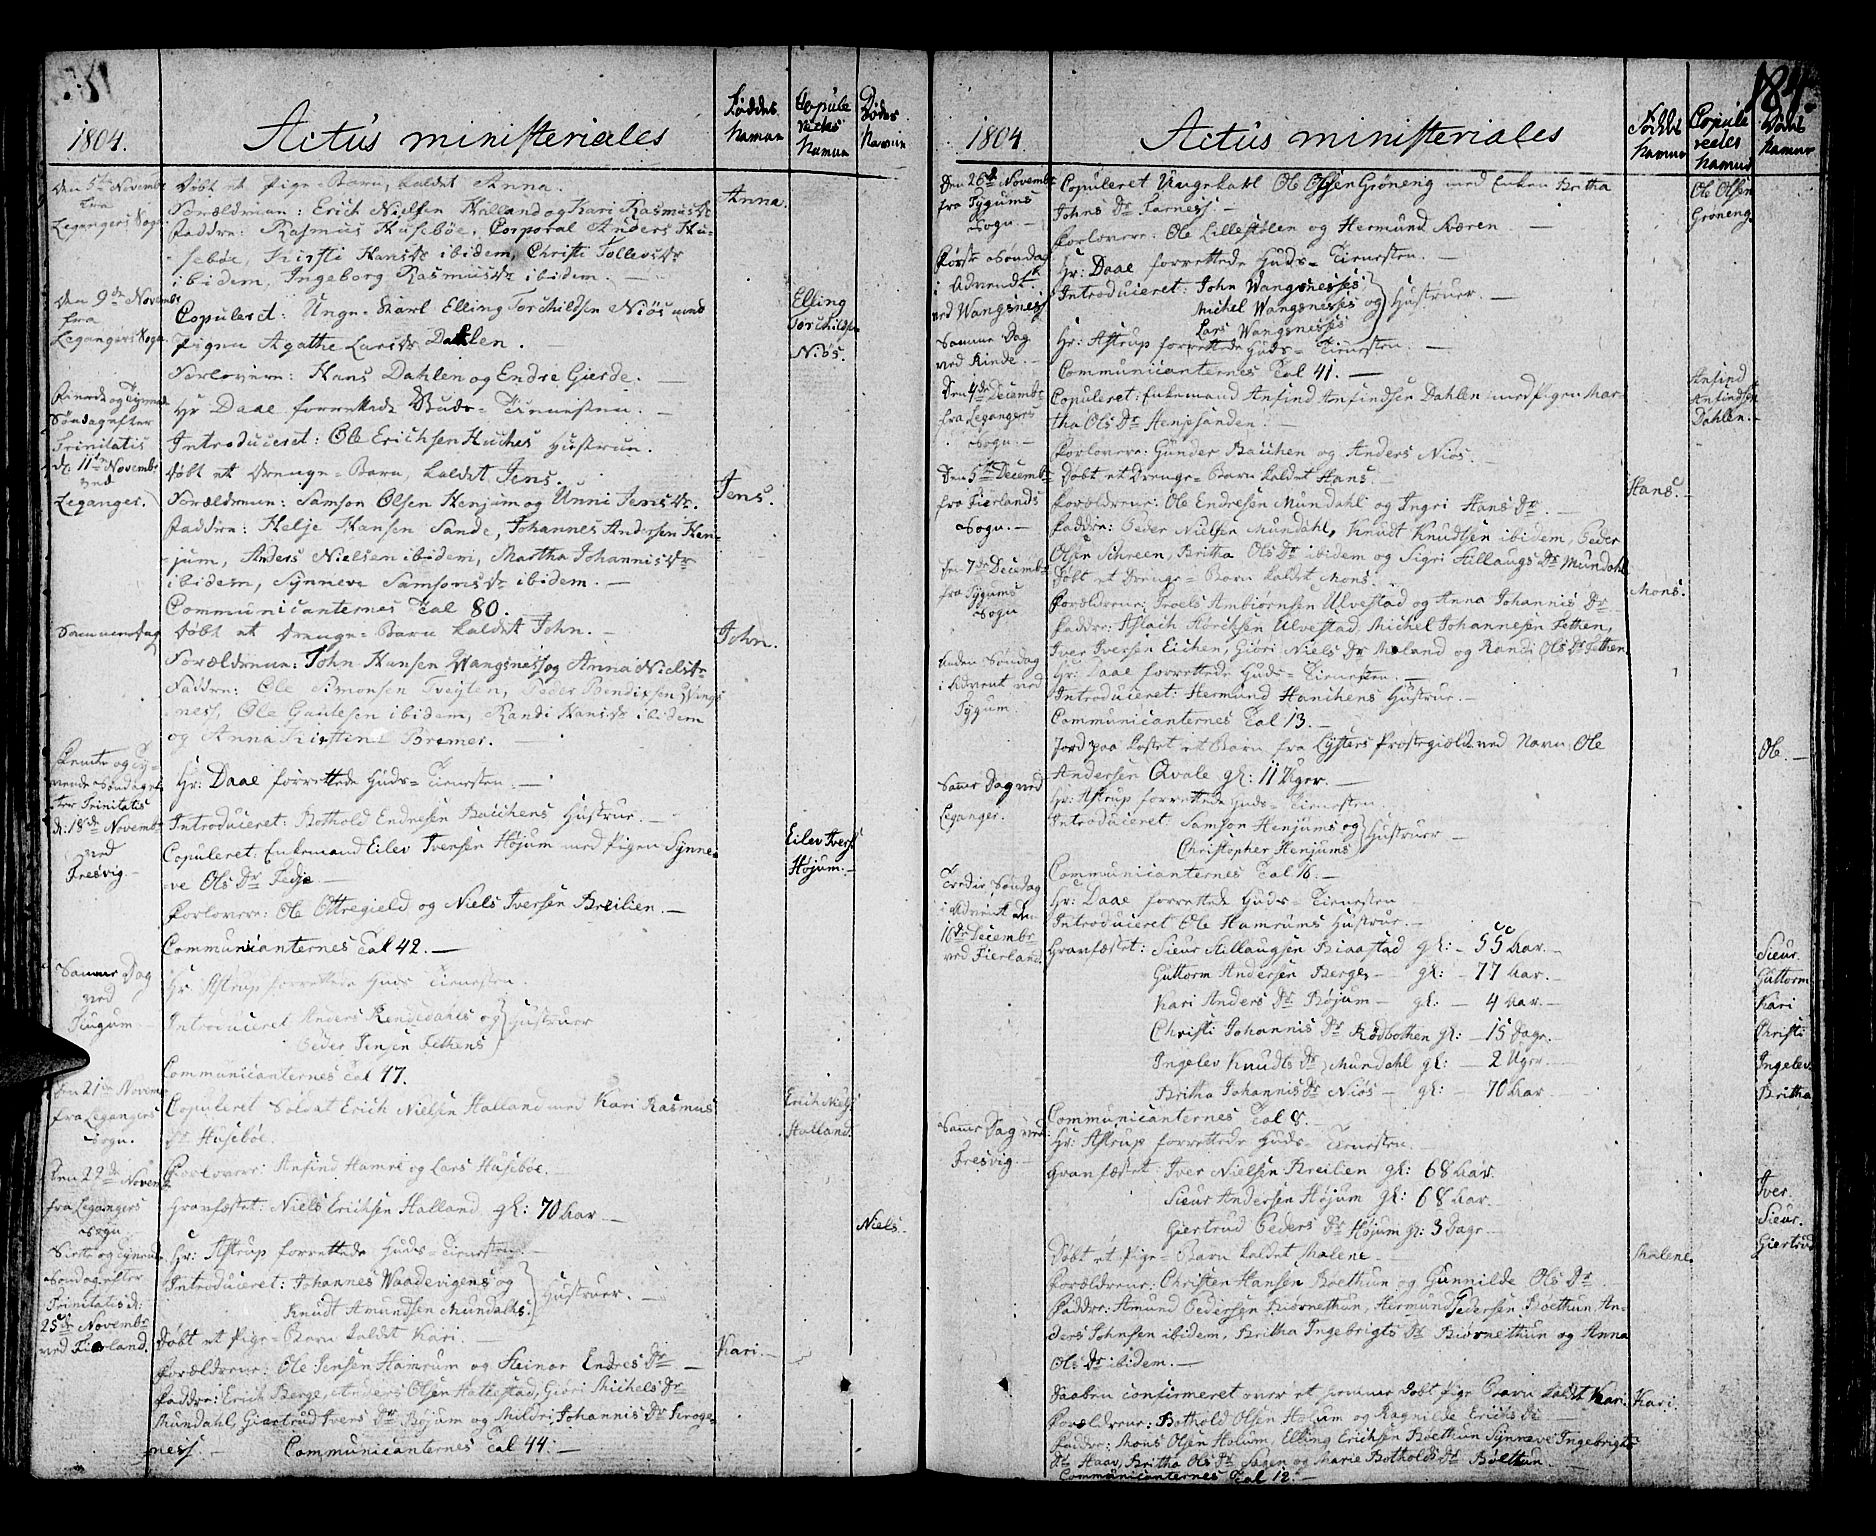 1804.
Actus ministeriales
Føddes Namun
Copule redes Namun
Dødes Namun
Den 5te Novembr fra Legangers Sogn.
Døbt et Pige-Barn, kaldet Anna.
Anna.
Forældrene: Erich Nielsen Halland og Kari Rasmusdr
Faddre: Rasmus Husebøe, Corporal Anders Hu-
sebøe, Kirsti Hansdr ibidem, Christi Tollevsdr
ibidem, Ingeborg Rasmusdr ibidem.
Den 9de Novembr fra Legangers Sogn
Copuleret: Unge-Karl Elling Torchildsen Niøs med
Elling Torchildsen Niøs.
Pigen Agathe Larsdr Dahlen.
Forlovere: Hans Dahlen og Endre Gierde.
Søndag efter Trinitatis d: 11te Novembr ved Leganger.
Hr Daae forrettede Guds-Tienesten.
Introduceret: Ole Erichsen Huches Hustrue.
Døbt et Drenge-Barn, kaldet Jens.
Jens.
Forældrene: Samson Olsen Henjum og Unni Jensdr.
Faddre: Helje Hansen Sande, Johannes Andersen Hen-
jum, Anders Nielsen ibidem, Martha Johannisdr
ibidem, Synneve Samsonsdr ibidem.
Communicanternes Tal 80.
Samme Dag
Døbt et Drenge-Barn kaldet John.
John.
Forældrene: John Hansen Wangsness og Anna Nielsdr
Faddre: Ole Simonsen Tveyten, Peder Bendixsen Wangs
ness, Ole Gautesen ibidem, Randi Hansdr ibidem
og Anna Kirstine Bremer.
Femte og Tyvende Søndag efter Trinitatis d: 18de Novembr ved Fresvig
Hr: Daae forrettede Guds-Tienesten.
Introduceret: Bothold Endresen Bauchens Hustrue.
Copuleret: Enkemand Eilev Iversen Højum med Pigen Synne-
Eilev Ivers Højum.
ve Ols Dr Fedje
Forlovere: Ole Ottregield og Niels Iversen Breilien.
Communicanternes Tal 42.
Samme Dag ved Tiugum
Hr: Astrup forrettede Guds Tienesten.
Introduceret Anders Rendedahls og
Peder Jensen Fethens } Hustruer
Communicanternes Tal 47.
Den 21de Novembr fra Legangers Sogn.
Copuleret Soldat Erich Nielsen Halland med Kari Rasmus
Erich Niels Halland.
Dr Husebøe.
Forlovere: Ansind Hamre og Lars Husebøe.
Den 22de Novembr fra Legangers Sogn
Gravfæstet: Niels Erichsen Halland gl: 70 Aar
Niels.
Siette og Tyvende Søndag efter Trinitatis d: 25de Novembr ved Fierland.
Hr: Astrup forrettede Guds-Tienesten.
Introduceret: Johannes Waadevigens og
Knudt Amundsen Mundahls } Hustruer.
Døbt et Pige-Barn kaldet Kari.
Kari.
Forældrene: Ole Jensen Hamrum og Steinor Endres Dr
Faddre: Erich Berge, Anders Olsen Hattestad, Giøri Michels Dr
Mundahl, Giertrud Ivers Dr Bøjum og Mildri Johannis Dr Kroge-
ness. Communicanternes Tal 44:
184.
1804
Actus ministeriales
Føddes Namun
Copule redes Namun
Dødes Namun
Den 26de Novembr fra Tygums Sogn
Copuleret Ungekarl Ole Olsen Grøneng med Enken Britha
Ole Olsen Grøneng
Johns Dr Farness.
Forlovere: Ole Lillestølen og Hermund Kværen
Første Søndag i Advendt ved Wangsness
Hr: Daae forrettede Guds-Tienesten.
Introduceret: John Wangsnesses
Michel Wangsnesses og } Hustruer.
Lars Wangsnesses
Samme Dag ved Rinde.
Hr: Astrup forrettede Guds-Tienesten.
Communicanternes Tal 41.
Den 4de Decembr fra Legangers Sogn.
Copuleret: Enkemand Ansind Ansindsen Dahlen med Pigen Mar-
Ansind Ansindsen Dahlen.
tha Ols Dr Henjesanden.
Forlovere: Gunder Bauchen og Anders Niøs.
Den 5te Decembr fra Fierlands Sogn.
Døbt et Drenge-Barn kaldet Hans.
Hans.
Forældrene: Ole Endresen Mundahl og Ingri Hans Dr
Faddre: Peder Nielsen Mundahl, Knudt Knudtsen ibidem, Peder
Olsen Schreen, Britha Ols Dr ibidem og Sigri Sillaugs Dr Mundahl
Den 7de Decembr fra Tygums Sogn
Døbt et Drenge-Barn kaldet Mons.
Mons.
Forældrene: Troels Ambiørnsen Ulvestad og Anna Johannis Dr.
Faddre: Aslach Børchsen Ulvestad, Michel Johannesen Fethen,
Iver Iversen Eichen, Giøri Niels Dr Moland og Randi Ols Dr Fethen
Anden Søndag i Advent ved Tygum
Hr: Daae forrettede Guds-Tienesten.
Introduceret: Hermund Hanchens Hustrue.
Communicanternes Tal 13.
Jord paa Kastet et Barn fra Lysters Prostegield ved Navn Ole
Ole.
Andersen Qvale gl: 11 Uger.
Samme Dag ved Leganger.
Hr: Astrup forrettede Guds-Tienesten.
Introduceret: Samson Henjums og
Christopher Henjums } Hustruer
Communicanternes Tal 16.
Tredie Søndag i Advent den 16de Decembr ved Fierland.
Hr: Daae forrettede Guds-Tienesten.
Introduceret Ole Hamrums Hustrue.
Gravfæstet: Sieur Sillaugsen Biaastad gl: 55 Aar.
Sieur.
Guttorm Andersen Berge gl: 77 Aar.
Guttorm
Kari Anders Dr Bøjum gl: 4 Aar.
Kari
Christi Johannis Dr Rødbothen gl: 15 Dage.
Christi
Ingelev Knudts Dr Mundahl gl: 2 Uger
Ingelev
Britha Johannis Dr Niøs gl: 70 Aar
Britha
Communicanternes Tal 8.
Samme Dag ved Fresvig
Hr: Astrup forrettede Guds-Tienesten.
Gravfæstet: Iver Nielsen Breilien gl: 68 Aar.
Iver.
Sieur Andersen Højum gl: 68 Aar.
Sieur.
Giertrud Peders Dr Højum gl: 3 Dage
Giertrud
Døbt et Pige-Barn kaldet Malene
Malene.
Forældrene: Christen Hansen Bøethun og Gunnilde Ols Dr
Faddre: Amund Pedersen Biørnethun, Hermund Pedersen Bøethun, An-
ders Johnsen ibidem, Britha Ingebrigts Dr Biørnethun og Anna
Ols Dr ibidem.
Daaben confirmeret over et hjemme døbt Pige Barn kaldet Kari.
Kari.
Forældrene: Bothold Olsen Holum og Ragnilde Erichs Dr
Faddre: Mons Olsen Holum, Elling Erichsen Bøethun Synneve Ingebrigts
Dr Haav, Britha Ols Dr Sagen og Marie Botholds Dr Bøethun
Communicanternes Tal 12.